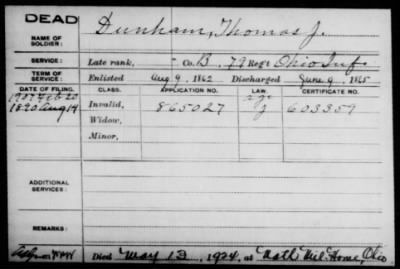 DEAD
NAME OF SOLDIER: Dunham, Thomas J.
SERVICE: Late rank, - Co. B, 79 Reg't Ohio Inf.
TERM OF SERVICE: Enlisted Aug 9, 1862 Discharged June 9, 1865
DATE OF FILING. CLASS. APPLICATION NO. LAW. CERTIFICATE NO.
1907 Feb 20 age
1890 Aug 14 Invalid, 865027 J 603359
Widow,
Minor,
ADDITIONAL SERVICES:
REMARKS:
Died May 13, 1924, at Natl. Mil. Home, Ohio